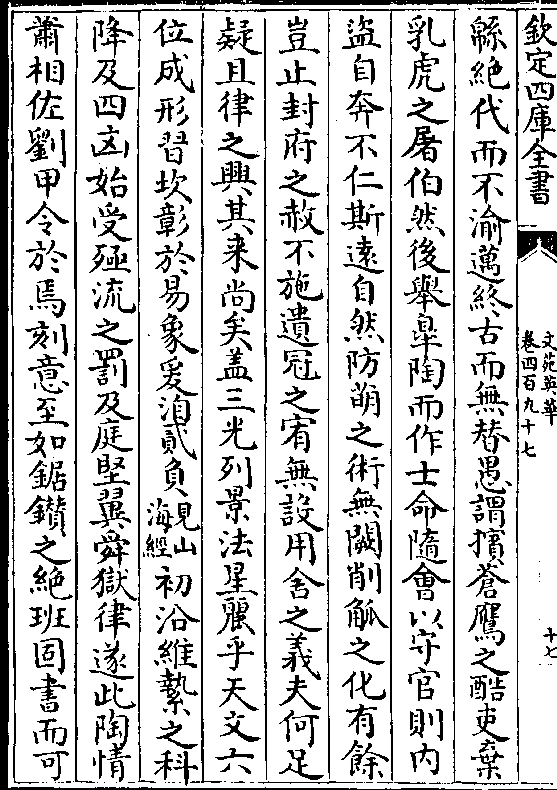 欽定四庫全書
文苑英華
卷四百九十七
十七
緜絶代而不渝邁終古而無替愚謂擯蒼鷹之酷吏棄
乳虎之屠伯然後舉臯陶而作士命隨會以守官則内
盜自奔不仁斯逺自然防萌之術無闕削觚之化有餘
豈止封府之赦不施遺冠之宥無設用舍之義夫何足
疑且律之興其来尚矣盖三光列景法星麗乎天文六
位成形習坎彰於易象爰洎貳負見山海經初沿維縶之科
降及四凶始受殛流之罰及庭堅翼舜獄律遂此陶情
蕭相佐劉甲令於焉刻意至如鋸鑽之絶班固書而可